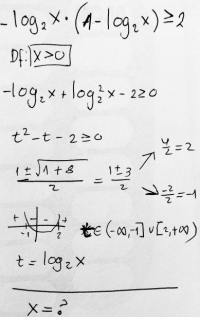 -log₂x·(1-log₂x)≥2
Df: x>0
-log₂x+log₂²x-2≥0
t²-t-2≥0
(1±√(1+8))/2 = (1±3)/2
4/2=2
-2/2=-1
+ - +
-1 2
t∈(-∞,-1]∪[2,+∞)
t=log₂x
x=?